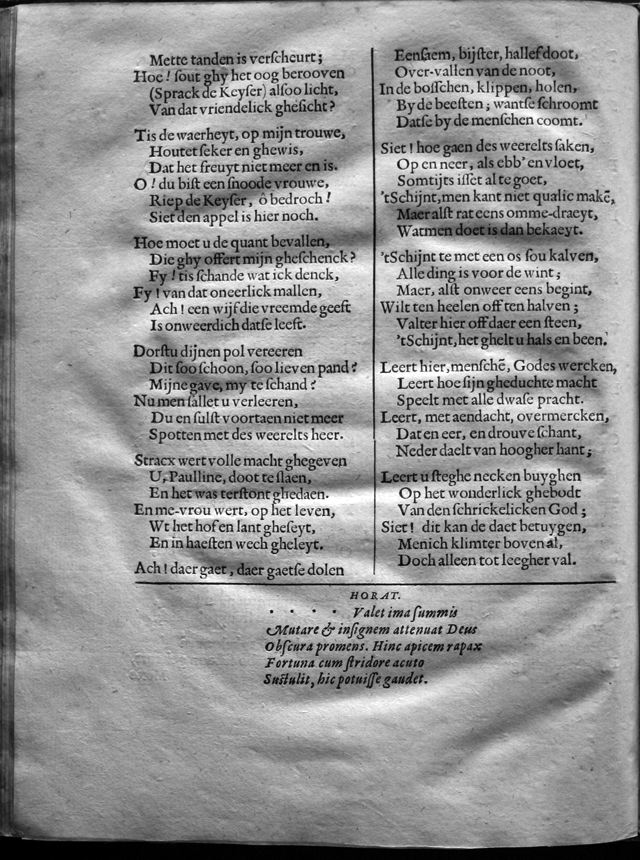 Mette tanden is verscheurt;
Hoe! sout ghy het oog berooven
(Sprack de Keyser) alsoo licht,
Van dat vriendelick ghesicht?
Tis de waerheyt, op mijn trouwe,
Houtet seker en ghewis,
Dat het freuyt niet meer en is.
O! du bist een snoode vrouwe,
Riep de Keyser, ô bedroch!
Siet den appel is hier noch.
Hoe moet u de quant bevallen,
Die ghy offert mijn gheschenck?
Fy! tis schande wat ick denck,
Fy! van dat oneerlick mallen,
Ach! een wijf die vreemde geeft
Is onweerdich datse leeft.
Dorstu dijnen pol vereeren
Dit soo schoon, soo lieven pand?
Mijne gave, my te schand?
Nu men sallet u verleeren,
Du en sulst voortaen niet meer
Spotten met des weerelts heer.
Stracx wert volle macht ghegeven
U, Paulline, doot te slaen,
En het was terstont ghedaen.
En me-vrou wert, op het leven,
Wt het hof en lant gheseyt,
En in haesten wech gheleyt.
Ach! daer gaet, daer gaetse dolen
Eensaem, bijster, hallef doot,
Over-vallen van de noot,
In de bosschen, klippen, holen,
By de beesten; wantse schroomt
Datse by de menschen coomt.
Siet! hoe gaen des weerelts saken,
Op en neer, als ebb' en vloet,
Somtijts isset al te goet,
'tSchijnt, men kant niet qualic makē,
Maer alst rat eens omme-draeyt,
Watmen doet is dan bekaeyt.
'tSchijnt te met een os sou kalven,
Alle ding is voor de wint;
Maer, alst onweer eens begint,
Wilt ten heelen off ten halven;
Valter hier off daer een steen,
'tSchijnt, het ghelt u hals en been.
Leert hier, menschē, Godes wercken,
Leert hoe sijn gheduchte macht
Speelt met alle dwase pracht.
Leert, met aendacht, overmercken,
Dat en eer, en drouve schant,
Neder daelt van hoogher hant;
Leert u steghe necken buyghen
Op het wonderlick ghebodt
Van den schrickelicken God;
Siet! dit kan de daet betuygen,
Menich klimter boven al,
Doch alleen tot leegher val.
HORAT.
· · · · Valet ima summis
Mutare & insignem attenuat Deus
Obscura promens. Hinc apicem rapax
Fortuna cum stridore acuto
Sustulit, hic potuisse gaudet.